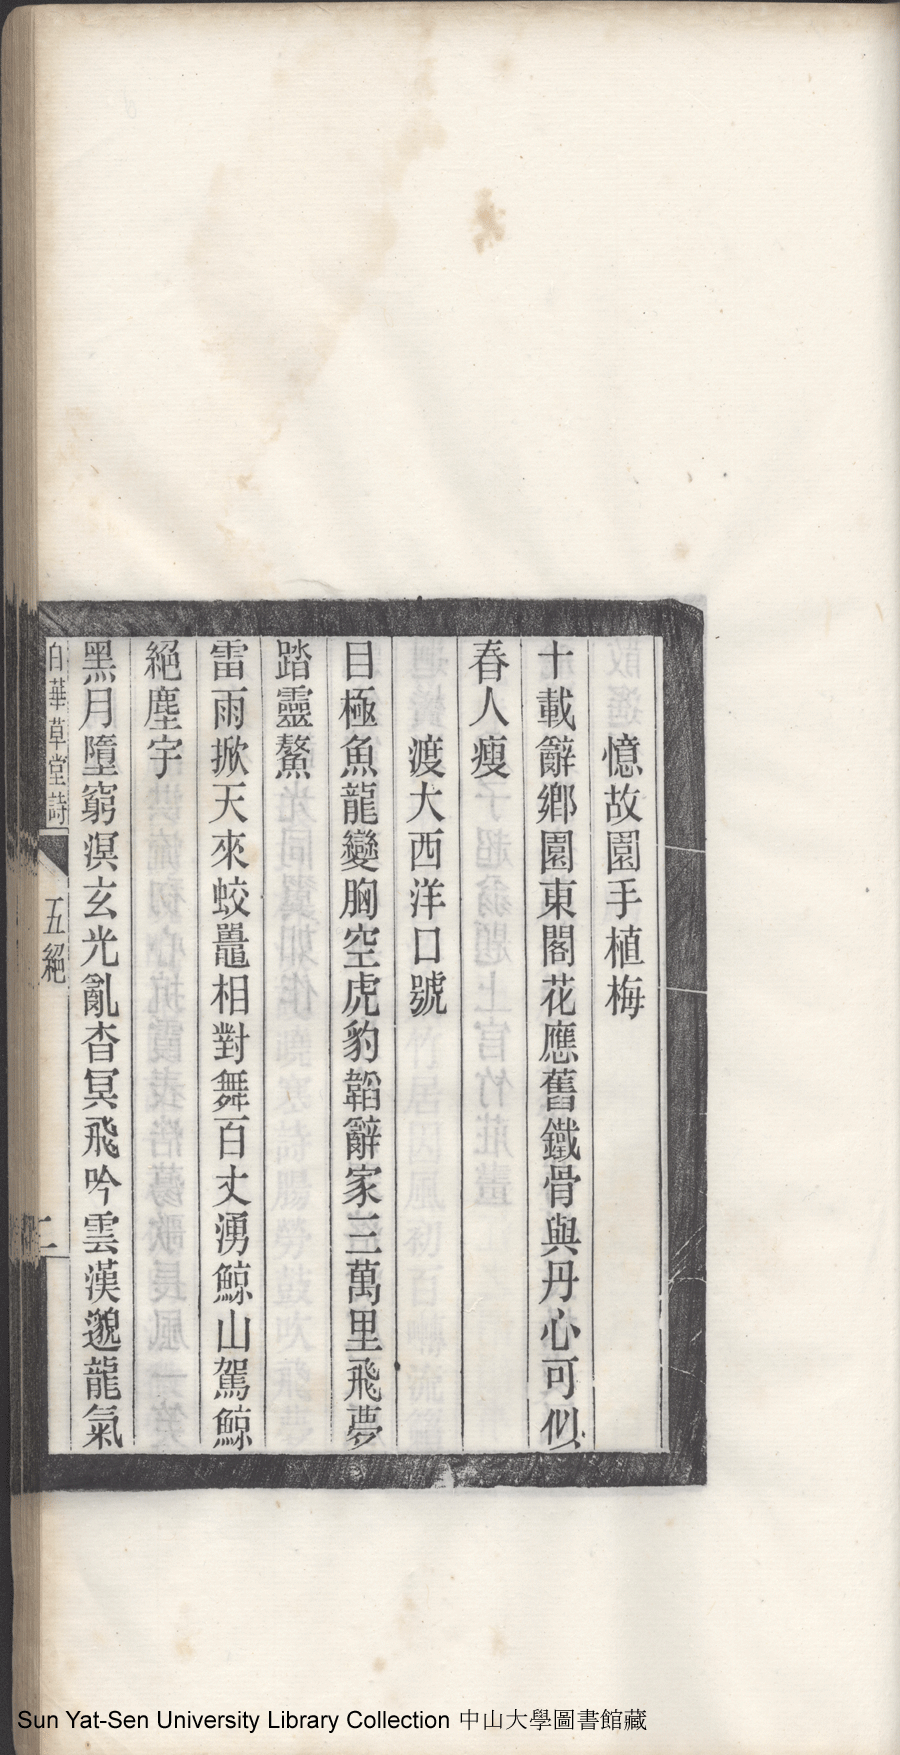 憶故園手植梅
十載辭鄉園東閣花應舊鐵骨與丹心可似
春人瘦
渡大西洋口號
目極魚龍變胸空虎豹韜辭家三萬里飛夢
踏靈鰲
雷雨掀天來蛟鼉相對舞百丈湧鯨山駕鯨
絕塵宇
黑月墮窮溟玄光亂杳冥飛吟雲漢邈龍氣
白華草堂詩
五絕
二
Sun Yat-Sen University Library Collection 中山大學圖書館藏